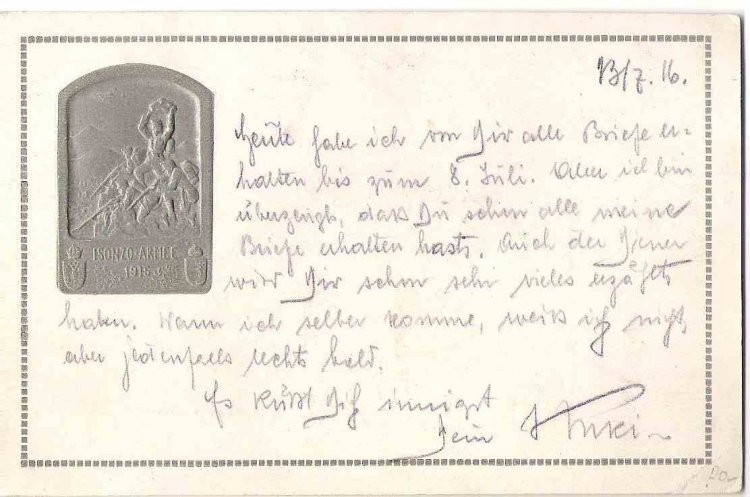 13/7. 16.
Heute habe ich von Dir alle Briefe er-
halten bis zum 8. Juli. Aber ich bin
überzeugt, dass Du schon alle meine
Briefe erhalten hast. Auch der
wird Dir schon sehr vieles erzählt
haben. Wann ich selber komme, weiss ich nicht,
aber jedenfalls rechts bald.
Es küsst Dich innigst
Dein
ISONZO-ARMEE
1915
20-